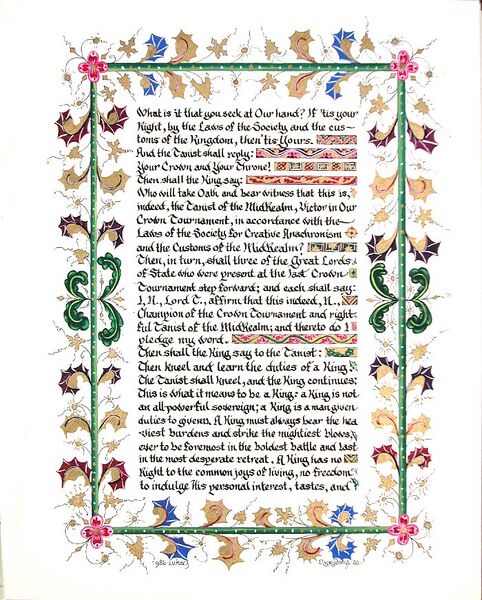 What is it that you seek at Our hand? If 'tis your
Right, by the Laws of the Society and the cus-
toms of the Kingdom, then 'tis Yours.
And the Tanist shall reply:
Your Crown and Your Throne!
Then shall the King say:
Who will take Oath and bear witness that this is,
indeed, the Tanist of the MidRealm, Victor in Our
Crown Tournament, in accordance with the
Laws of the Society for Creative Anachronism
and the Customs of the MidRealm?
Then, in turn, shall three of the Great Lords
of State who were present at the last Crown
Tournament step forward; and each shall say:
I, N., Lord T., affirm that this indeed, N.,
Champion of the Crown Tournament and right
ful Tanist of the MidRealm; and thereto do I
pledge my word.
Then shall the King say to the Tanist:
Then kneel and learn the duties of a King.
The Tanist shall kneel, and the King continues:
This is what it means to be a King: a King is not
an all-powerful sovereign; a King is a man given
duties to govern. A King must always bear the hea
viest burdens and strike the mightiest blows,
ever to be foremost in the boldest battle and last
in the most desperate retreat. A King has no
Right to the common joys of living, no freedom
to indulge His personal interest, tastes, and
1986